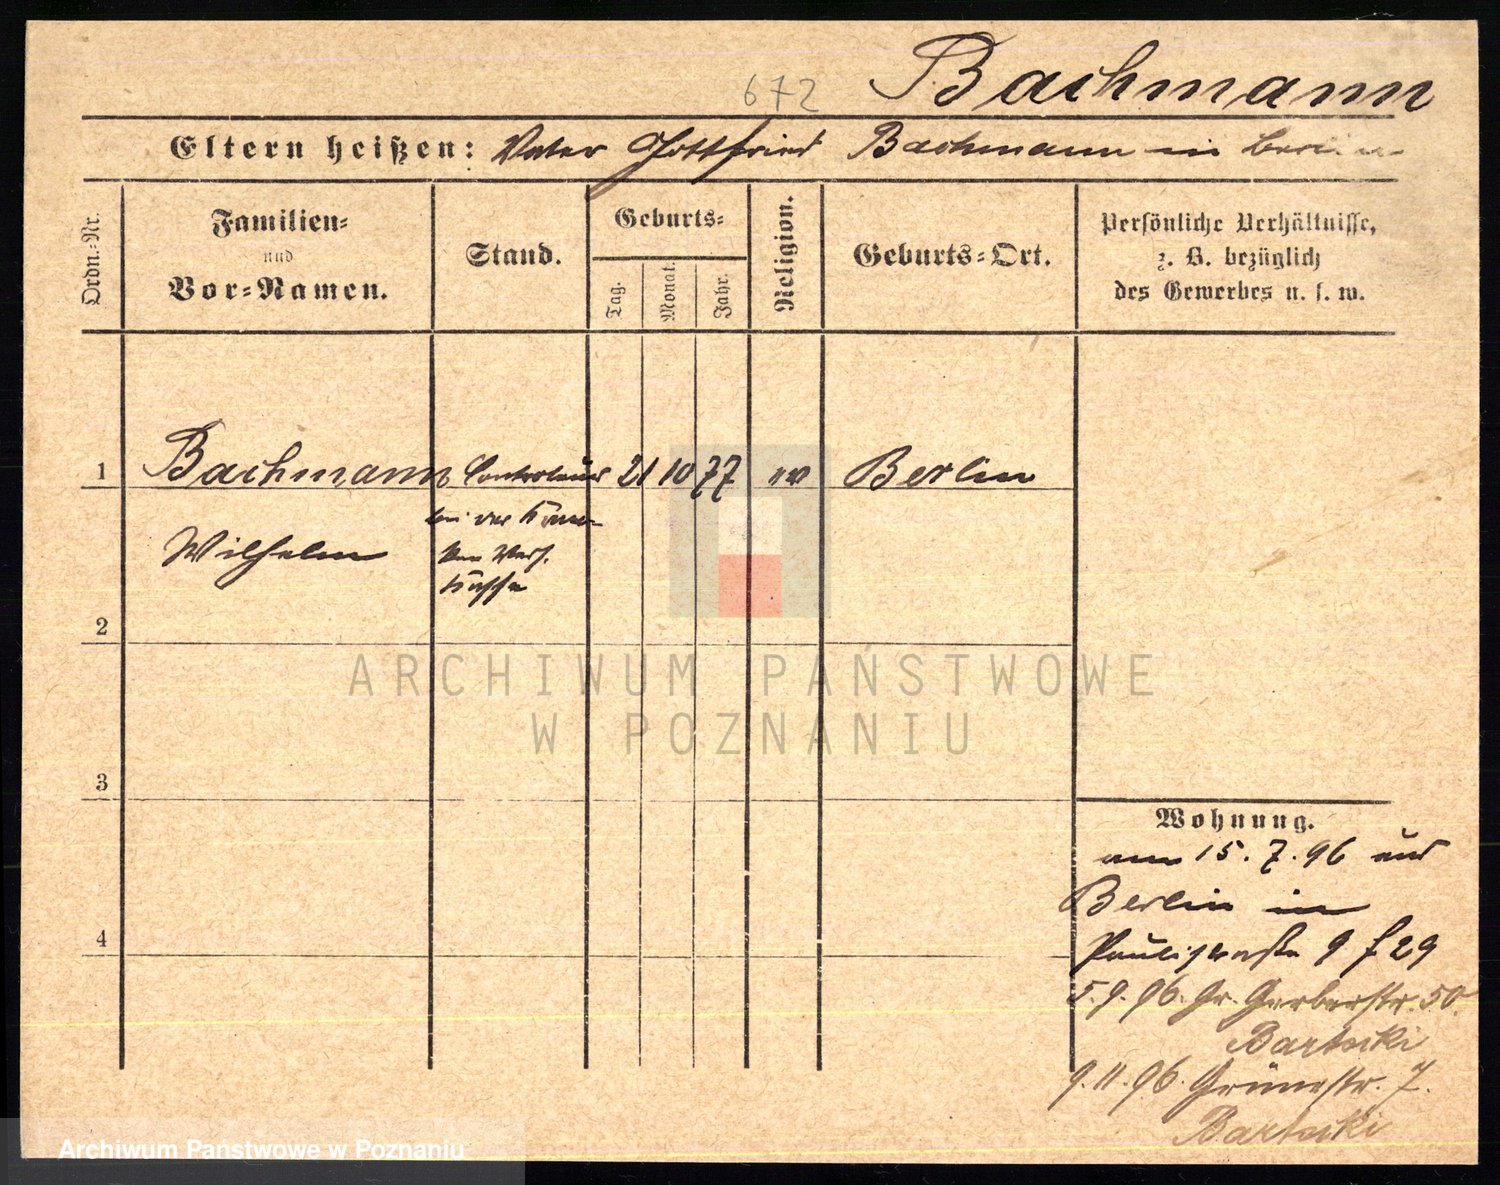 672
Bachmann
Eltern heißen: Vater Gottfried Bachmann in Berlin
Ordn.-Nr.
Familien-
und
Vor-Namen.
Stand.
Geburts-
Tag.
Monat.
Jahr.
Religion.
Geburts-Ort.
Persönliche Verhältnisse,
z. B. bezüglich
des Gewerbes u. s. w.
1 Bachmann Controleur 21 10 77 ev Berlin
bei der Kran-
Wilhelm ken Vers.
Kasse
2
3
4
Wohnung.
am 15. 7. 96 aus
Berlin in
Paulistraße 9 f 29
5. 9. 96. Gr. Gerberstr. 50.
9. 11. 96. Grünestr. 7.
ARCHIWUM PAŃSTWOWE
W POZNANIU
Archiwum Państwowe w Poznaniu